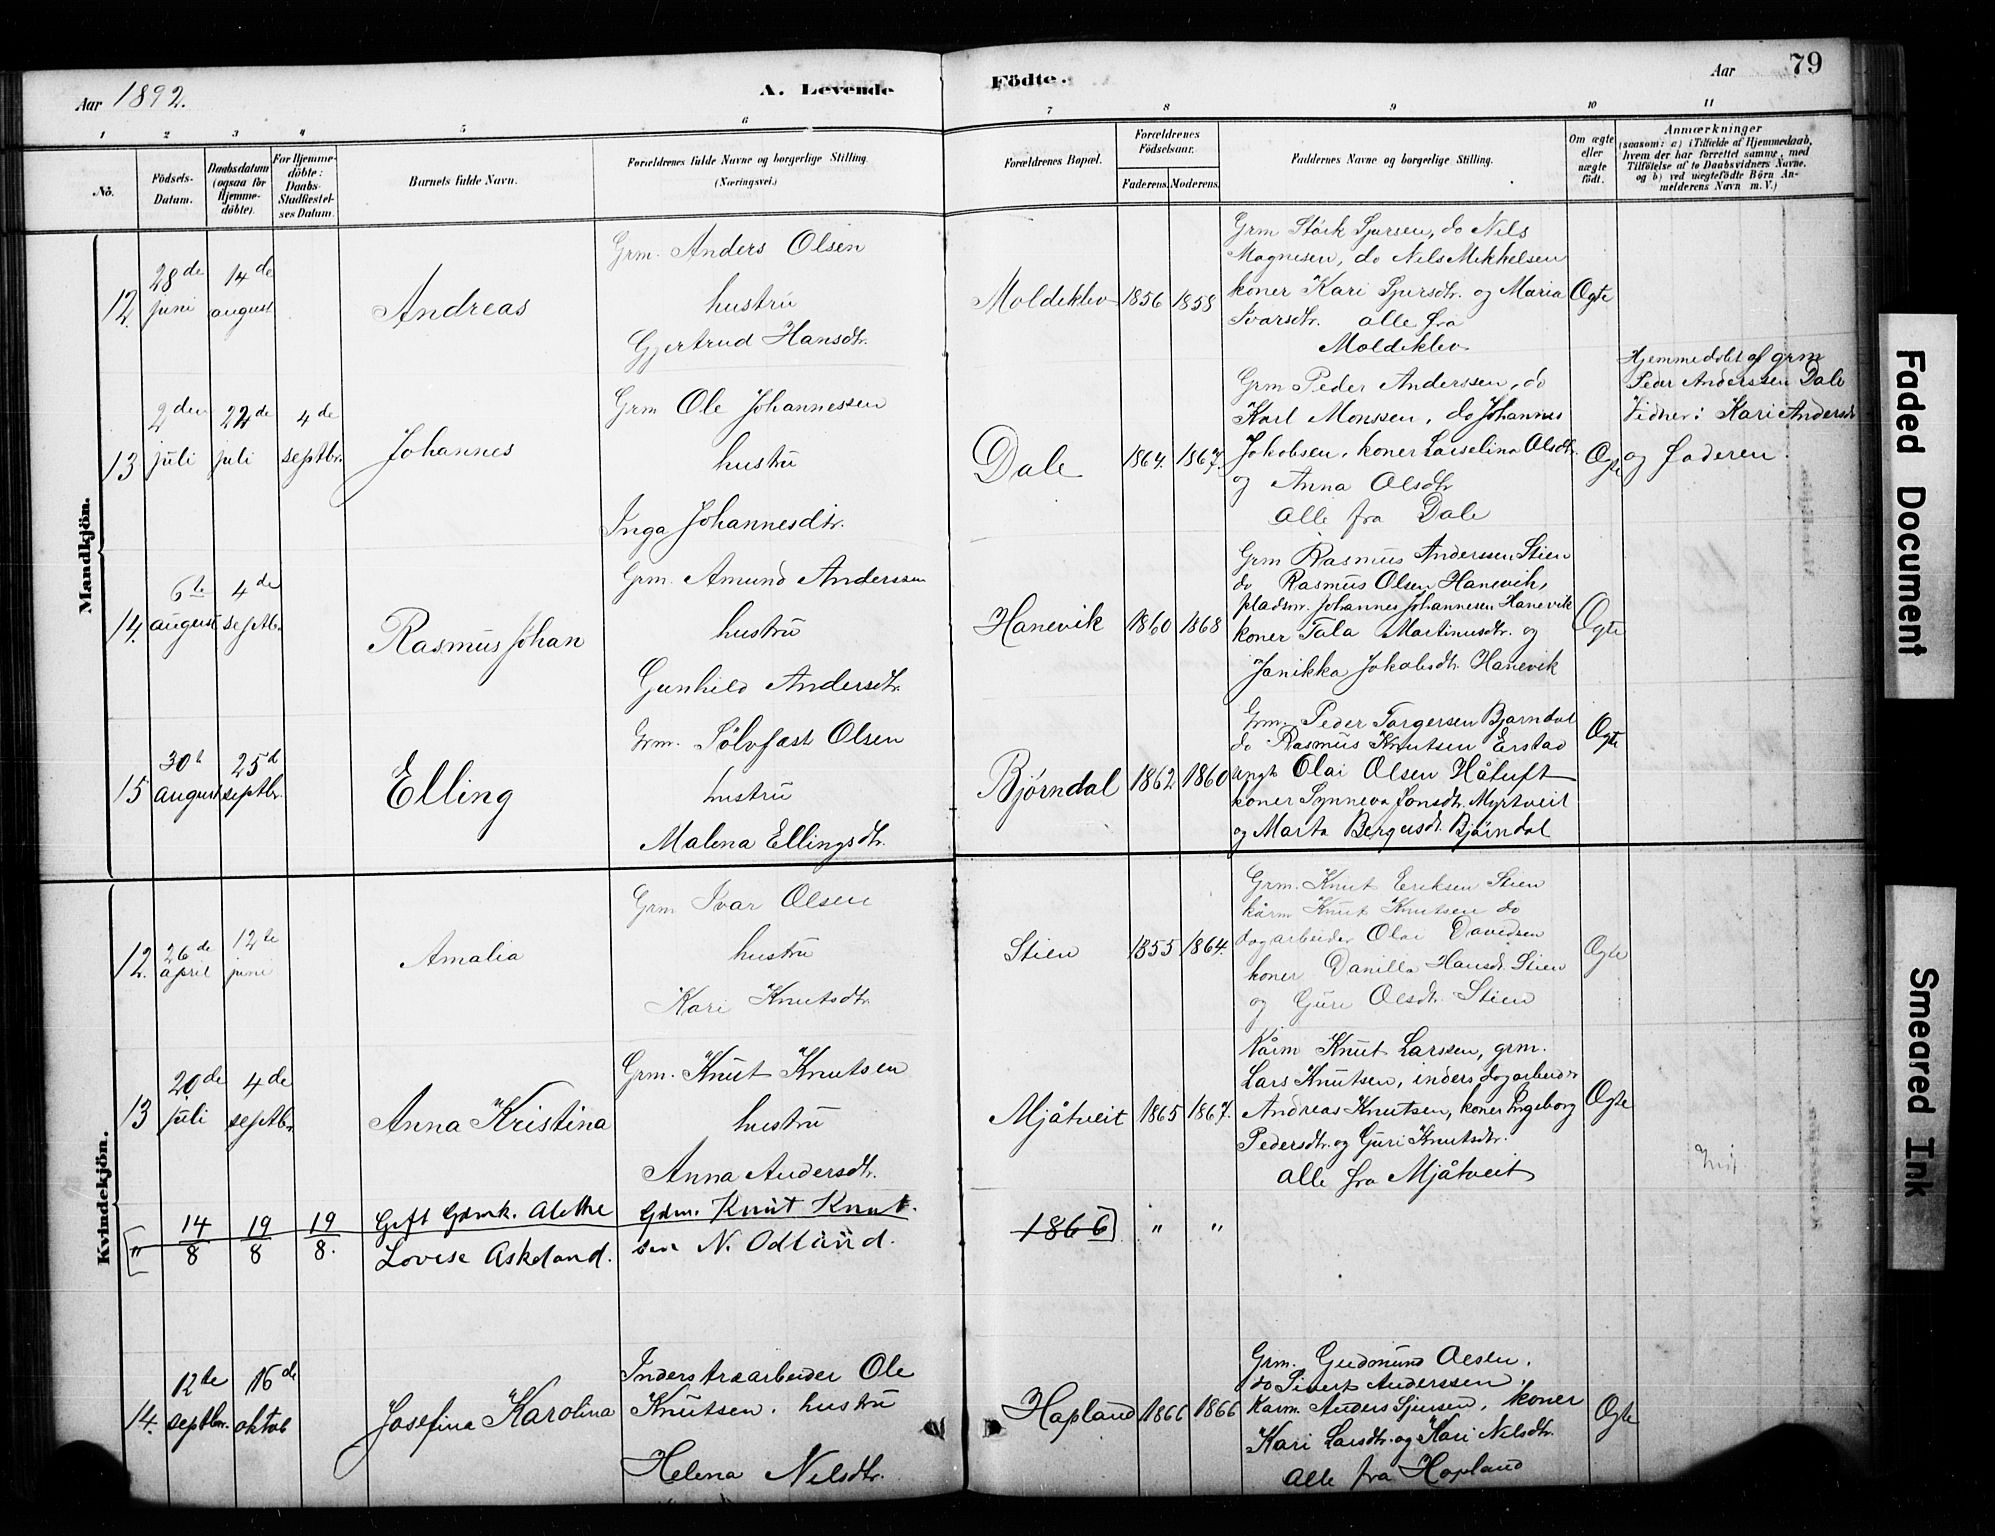 Aar 1892.
A. Levende
Födte.
Aar
79
1
2
3
4
5
6
7
8
9
10
11
Nö.
Födsels-
Datum.
Daabsdatum
(ogsaa for
Hjemme-
döbte).
For Hjemme-
döbte:
Daabs-
Stadfæstel-
ses Datum.
Barnets fulde Navn.
Forældrenes fulde Navne og borgerlige Stilling.
(Næringsvei.)
Forældrenes Bopæl.
Forældrenes
Födselsaar.
Faderens.
Moderens.
Faddernes Navne og borgerlige Stilling.
Om ægte
eller
uægte
födt.
Anmærkninger
(saasom: a) i Tilfælde af Hjemmedaab,
hvem der har forrettet samme, med
Tilföielse af to Daabsvidners Navne,
og b) ved uægtefödte Börn An-
melderens Navn m. V.)
Mandkjön.
12.
28de
juni
14de
august
Andreas
Grm. Anders Olsen
hustru
Gjertrud Hansdtr.
Moldeklev
1856
1858
Grm Störk Sjursen, do Nils
Magnesen, do Nils Mikkelsen
koner Kari Sjursdtr. og Maria
Ivarsdtr. alle fra
Moldeklev
Ægte
13
2den
juli
22de
juli
4de
septbr.
Johannes
Grm Ole Johannessen
hustru
Inga Johannesdtr.
Dale
1864.
1867.
Grm Peder Anderssen, do
Karl Monssen, do Johannes
Jakobsen, koner Larselina Olsdtr.
og Anna Olsdtr
alle fra Dale
Ægte
Hjemmedøbt af grm
Peder Anderssen Dale
Vidner: Kari Andersdr
og faderen.
14.
6te
august
4de
septbr.
Rasmus Johan
Grm. Amund Anderssen
hustru
Gunhild Andersdtr.
Hanevik
1860
1868
Grm Rasmus Anderssen Stien
do Rasmus Olsen Hanevik,
pladsm. Johannes Johannesen Hanevik
koner Tala Martinusdtr. og
Janikka Jakobsdtr. Hanevik
Ægte
15
30t
august
25d
septbr.
Elling
Grm. Sølvfast Olsen
hustru
Malena Ellingsdtr.
Bjørndal
1862
1860
Grm. Peder Torgersen Bjørndal
do Rasmus Knutsen Erstad
ungk Olai Olsen Håtuft
koner Synneva Jonsdtr. Myrtveit
og Marta Bergesdtr. Bjørndal
Ægte
Kvindekjön.
12.
26de
april
12te
juni
Amalia
Grm Ivar Olsen
hustru
Kari Knutsdtr
Stien
1855
1864.
Grm. Knut Eriksen Stien
kårm Knut Knutsen do
dagarbeider Olai Davidsen
koner Danilla Hansdtr. Stien
og Guri Olsdtr. Stien
Ægte
13
20de
juli
4de
septbr
Anna Kristina
Grm. Knut Knutsen
hustru
Anna Andersdtr.
Mjåtveit
1865
1867.
Kårm Knut Larssen, grm.
Lars Knutsen, inderst dagarbeider
Andreas Knutsen, koner Ingeborg
Pedersdtr. og Guri Knutsdtr.
alle fra Mjåtveit
Ægte
[ "
14/8
19/8
19/8.
Gift Gdmk. Alethe
Lovise Askeland.
Gdm. Knut Knut-
sen N. Odland.
1866]
"
"
14.
12te
septbr.
16de
oktob
Josefina Karolina
Inderstraarbeider Ole
Knutsen. hustru
Helena Nilsdtr.
Hopland
1866
1866
Grm. Gudmund Olsen,
do Sivert Anderssen,
Kårm. Anders Sjursen, koner
Kari Larsdtr. og Kari Nilsdtr.
alle fra Hopland
Ægte
Faded Document
Smeared Ink